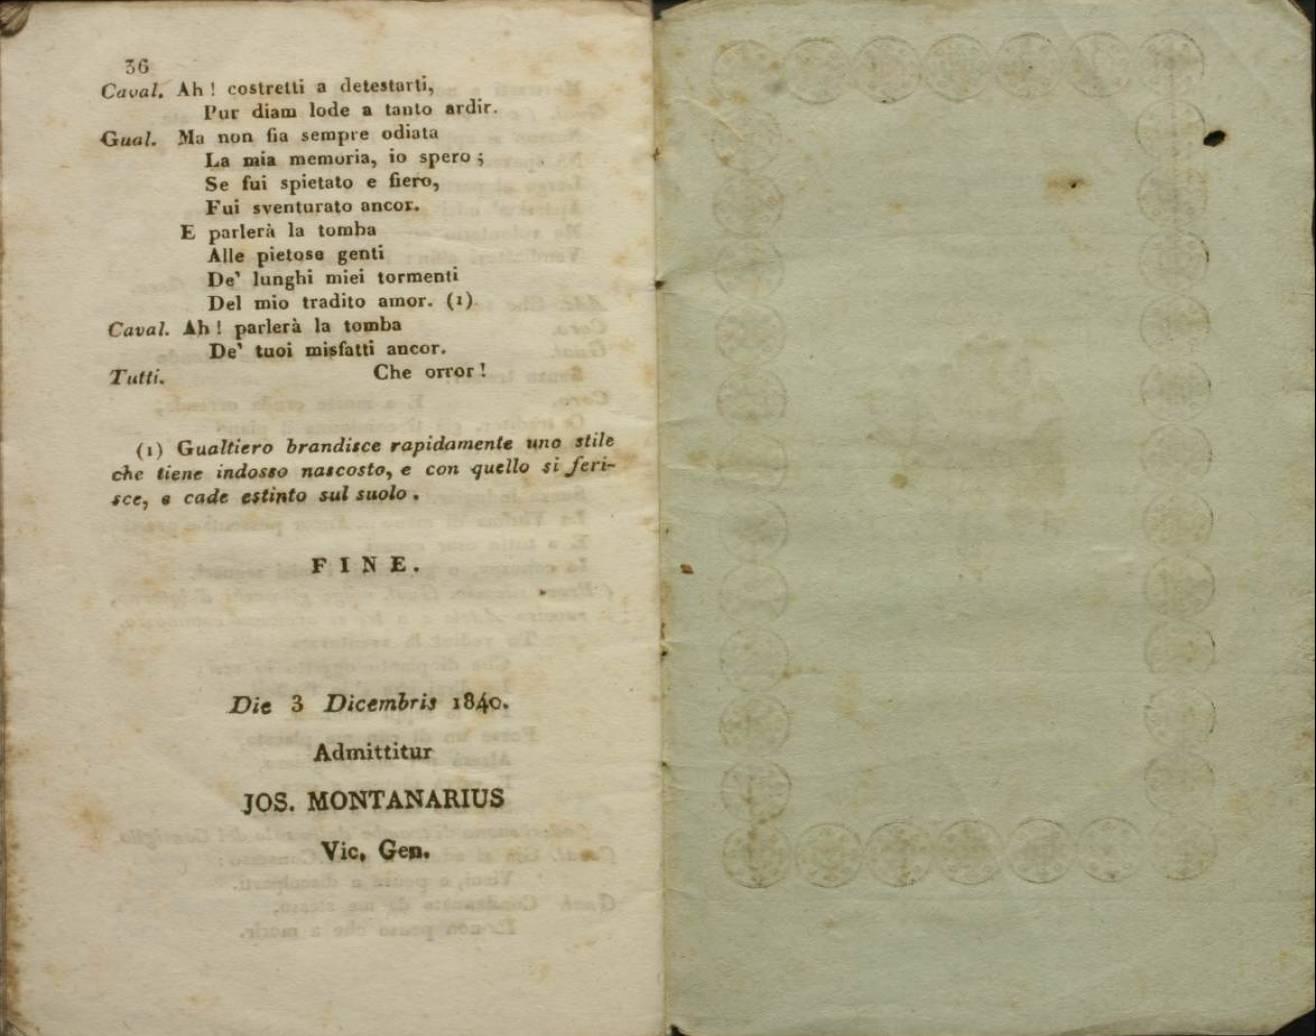 36
Caval. Ah! costretti a detestarti,
Pur diam lode a tanto ardir.
Gual. Ma non fia sempre odiata
La mia memoria, io spero;
Se fui spietato e fiero,
Fui sventurato ancor.
E parlerà la tomba
Alle pietose genti
De' lunghi miei tormenti
Del mio tradito amor. (1)
Caval. Ah! parlerà la tomba
De' tuoi misfatti ancor.
Tutti. Che orror!
(1) Gualtiero brandisce rapidamente uno stile
che tiene indosso nascosto, e con quello si feri-
sce, e cade estinto sul suolo.
FINE.
Die 3 Dicembris 1840.
Admittitur
JOS. MONTANARIUS
Vic. Gen.